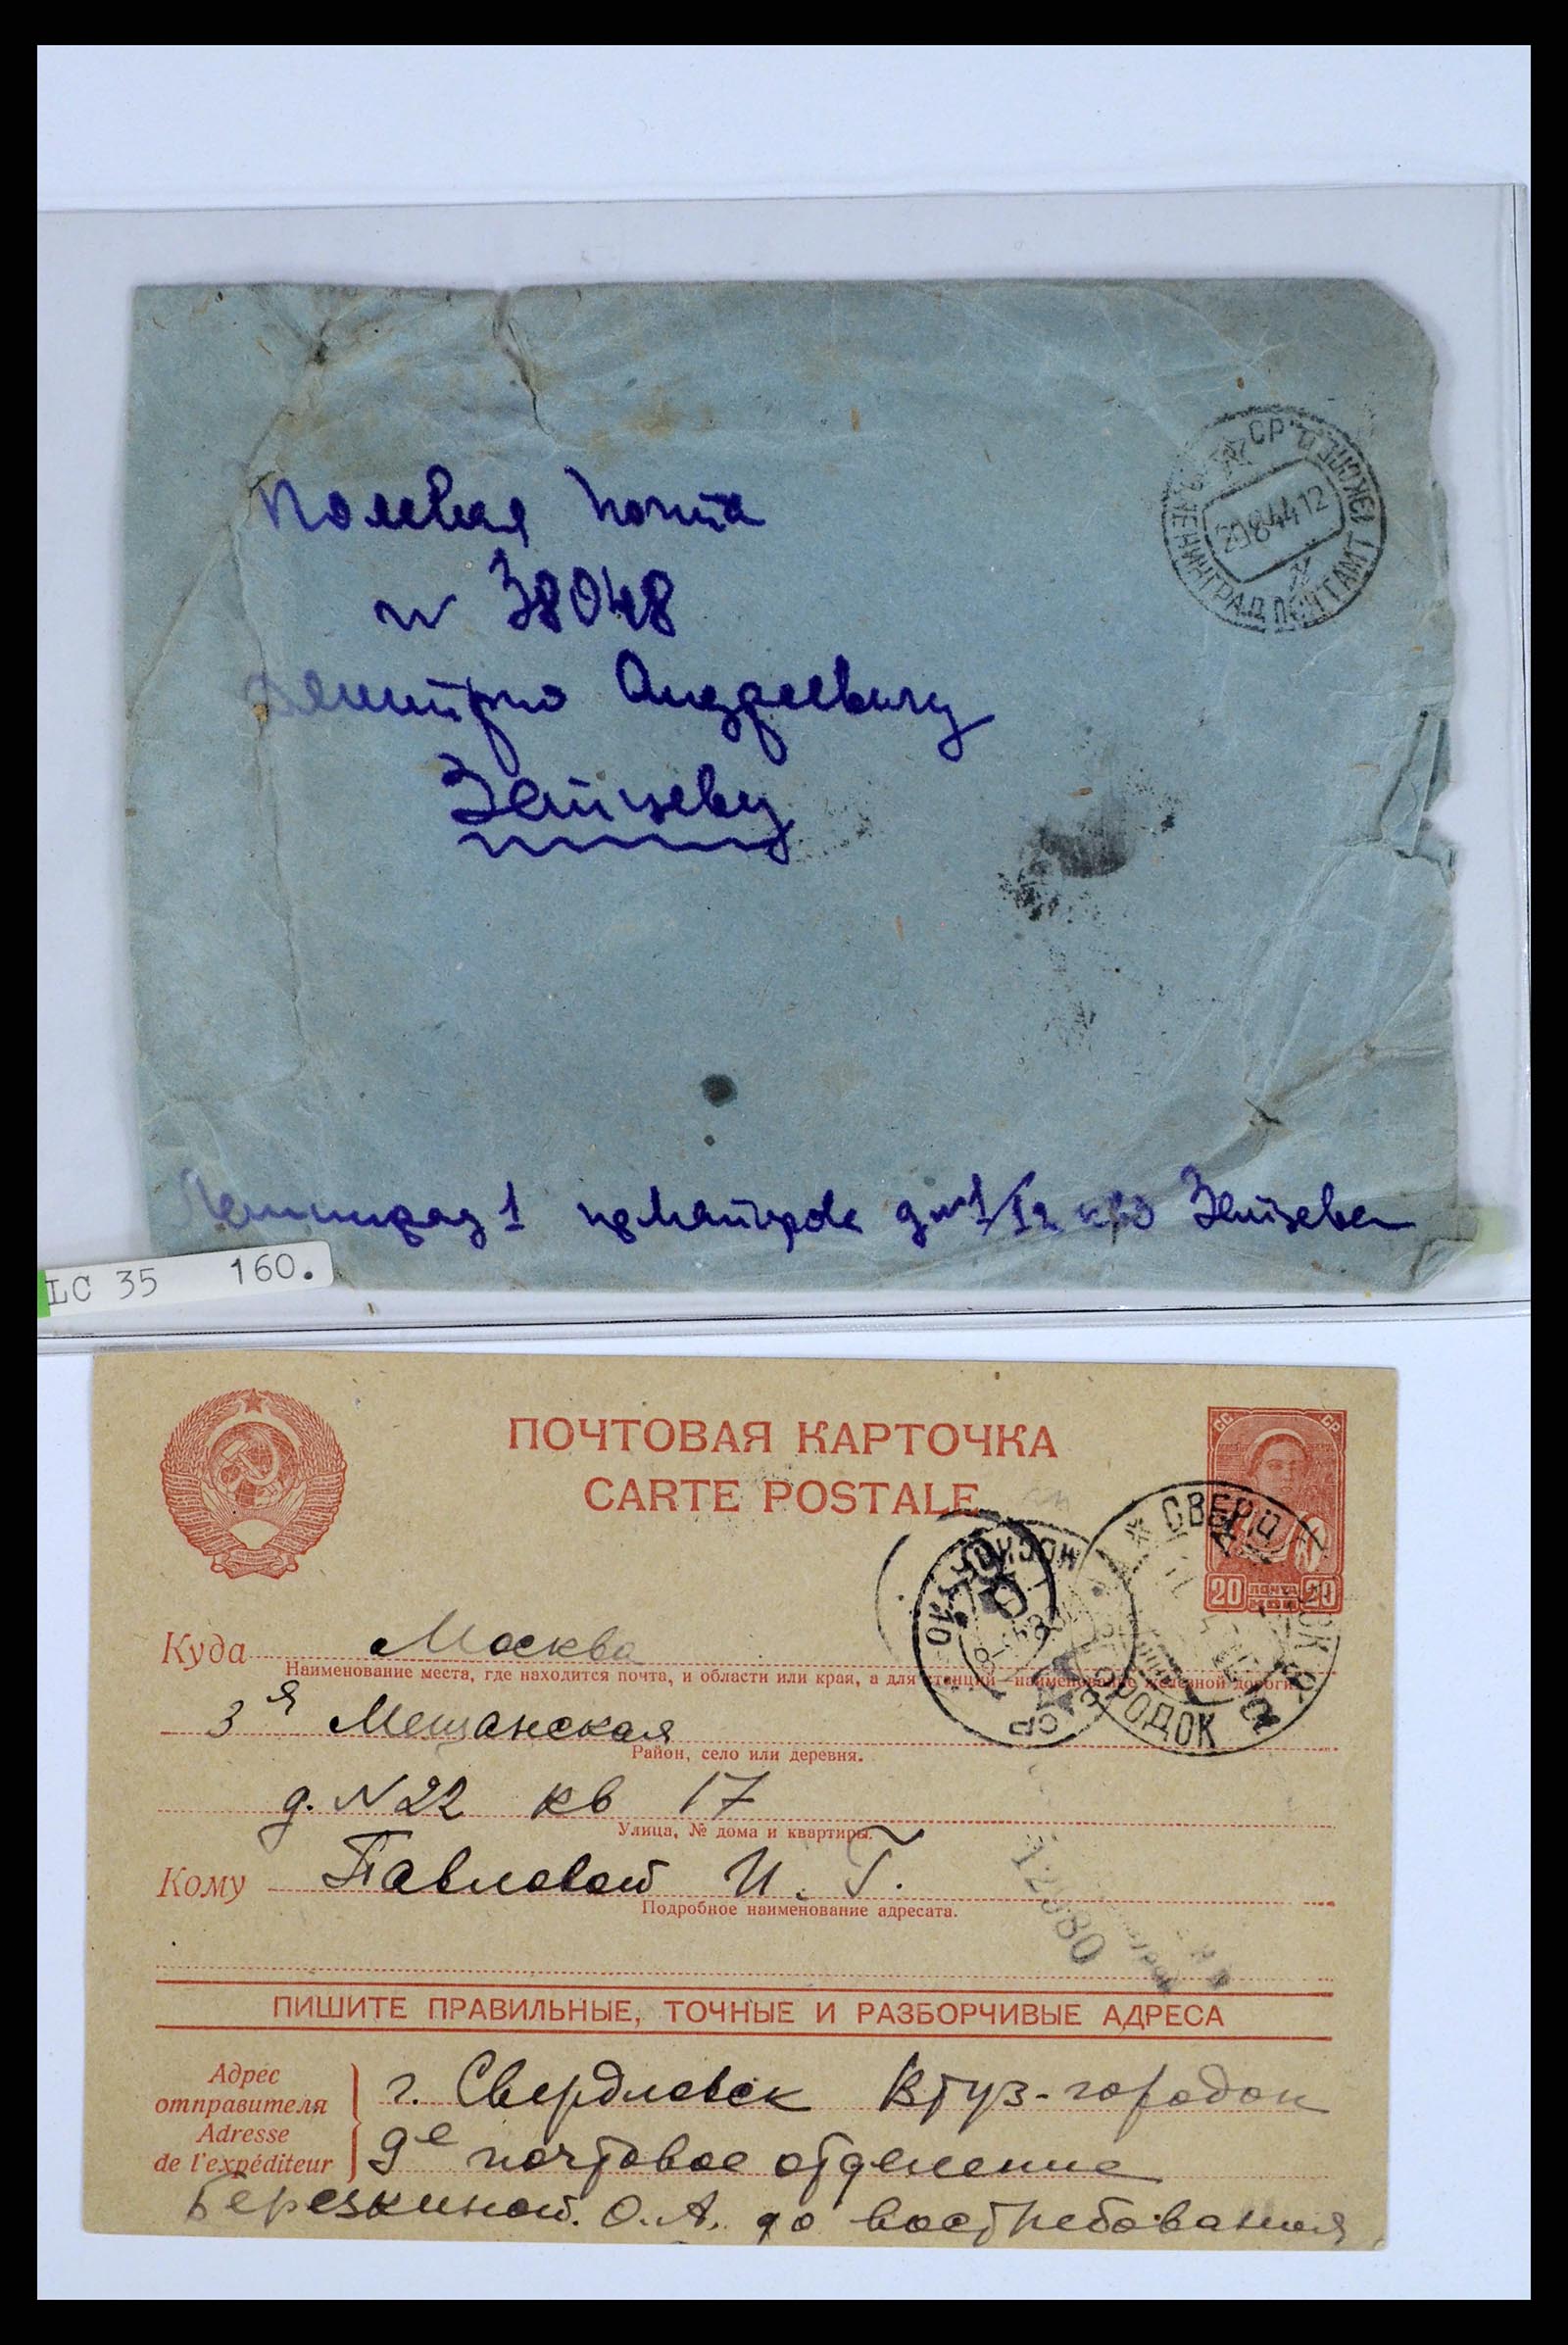 Полевая почта
N 38048
Дмитрию Андреевичу
Зайцеву
29844 12
ЛЕНИНГРАД ПОЧТАМТ
Ленинград 1 пр Майорова д N 1/12 кв Зайцева
LC 35 160.
ПОЧТОВАЯ КАРТОЧКА
CARTE POSTALE
СС СР
20 ПОЧТА КОП 20
СВЕРД
ГОРОДОК
МОСКВА
Куда Москва
Наименование места, где находится почта, и области или края, а для станций—наименование железной дороги.
3 я Мещанская
Район, село или деревня.
д. N 22 кв 17
Улица, № дома и квартиры.
Кому Павловой И. Г.
Подробное наименование адресата.
ПИШИТЕ ПРАВИЛЬНЫЕ, ТОЧНЫЕ И РАЗБОРЧИВЫЕ АДРЕСА
Адрес отправителя
Adresse de l'expéditeur
г. Свердловск Втуз-городок
9е почтовое отделение
Березкиной. О. А. до востребования